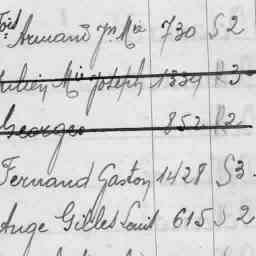 Armand Jn Mie 730 S 2
Julien Mie Joseph 1334 R 3
Georges 852 R 2
Fernand Gaston 1428 S 3
Ange Gilles Louis 615 S 2